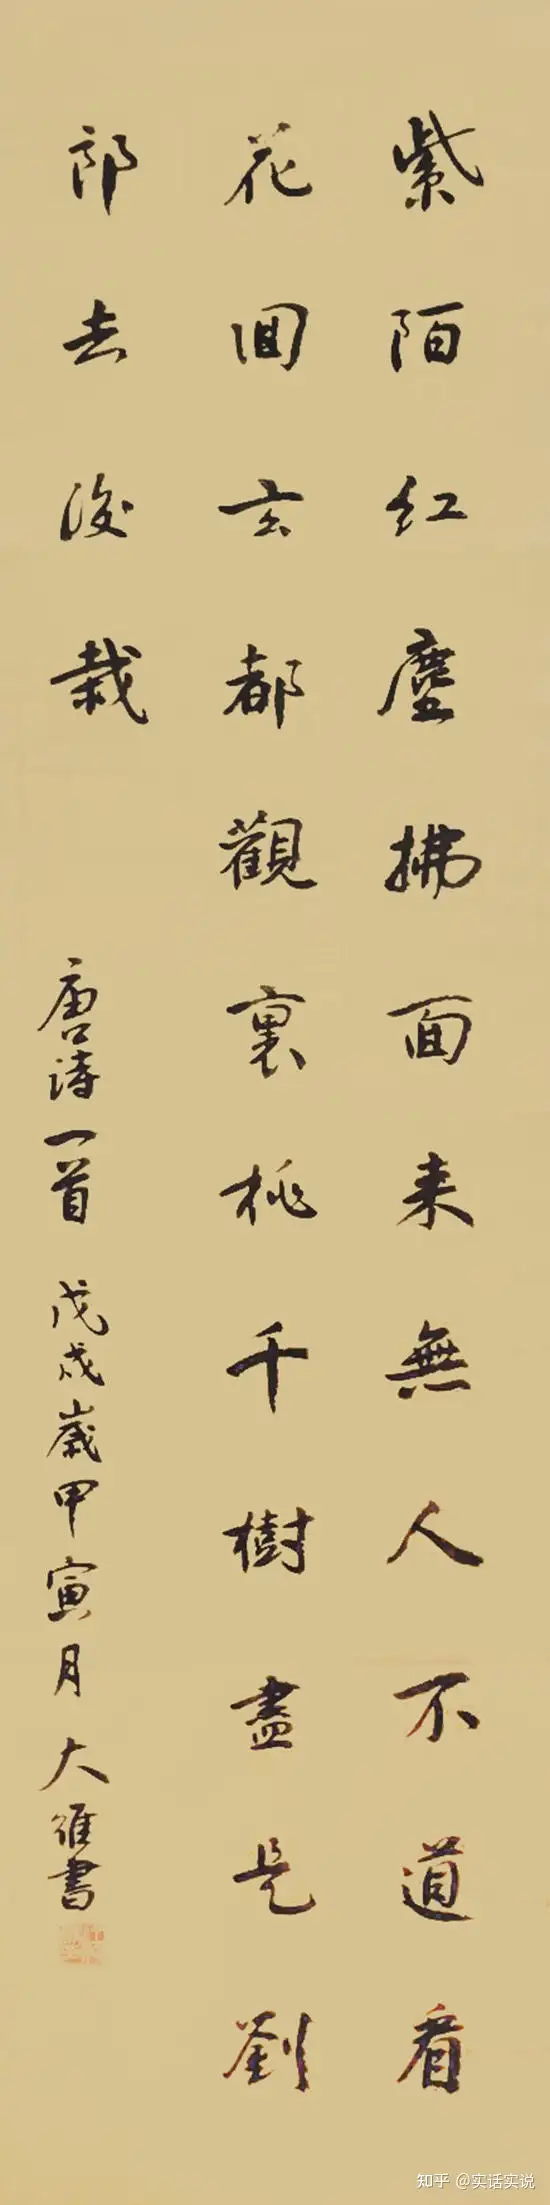 紫陌红塵拂面来無人不道看
花回玄都觀裏桃千樹盡是劉
郎去後栽
唐诗一首 戊戌歲甲寅月大維書
知乎 @实话实说